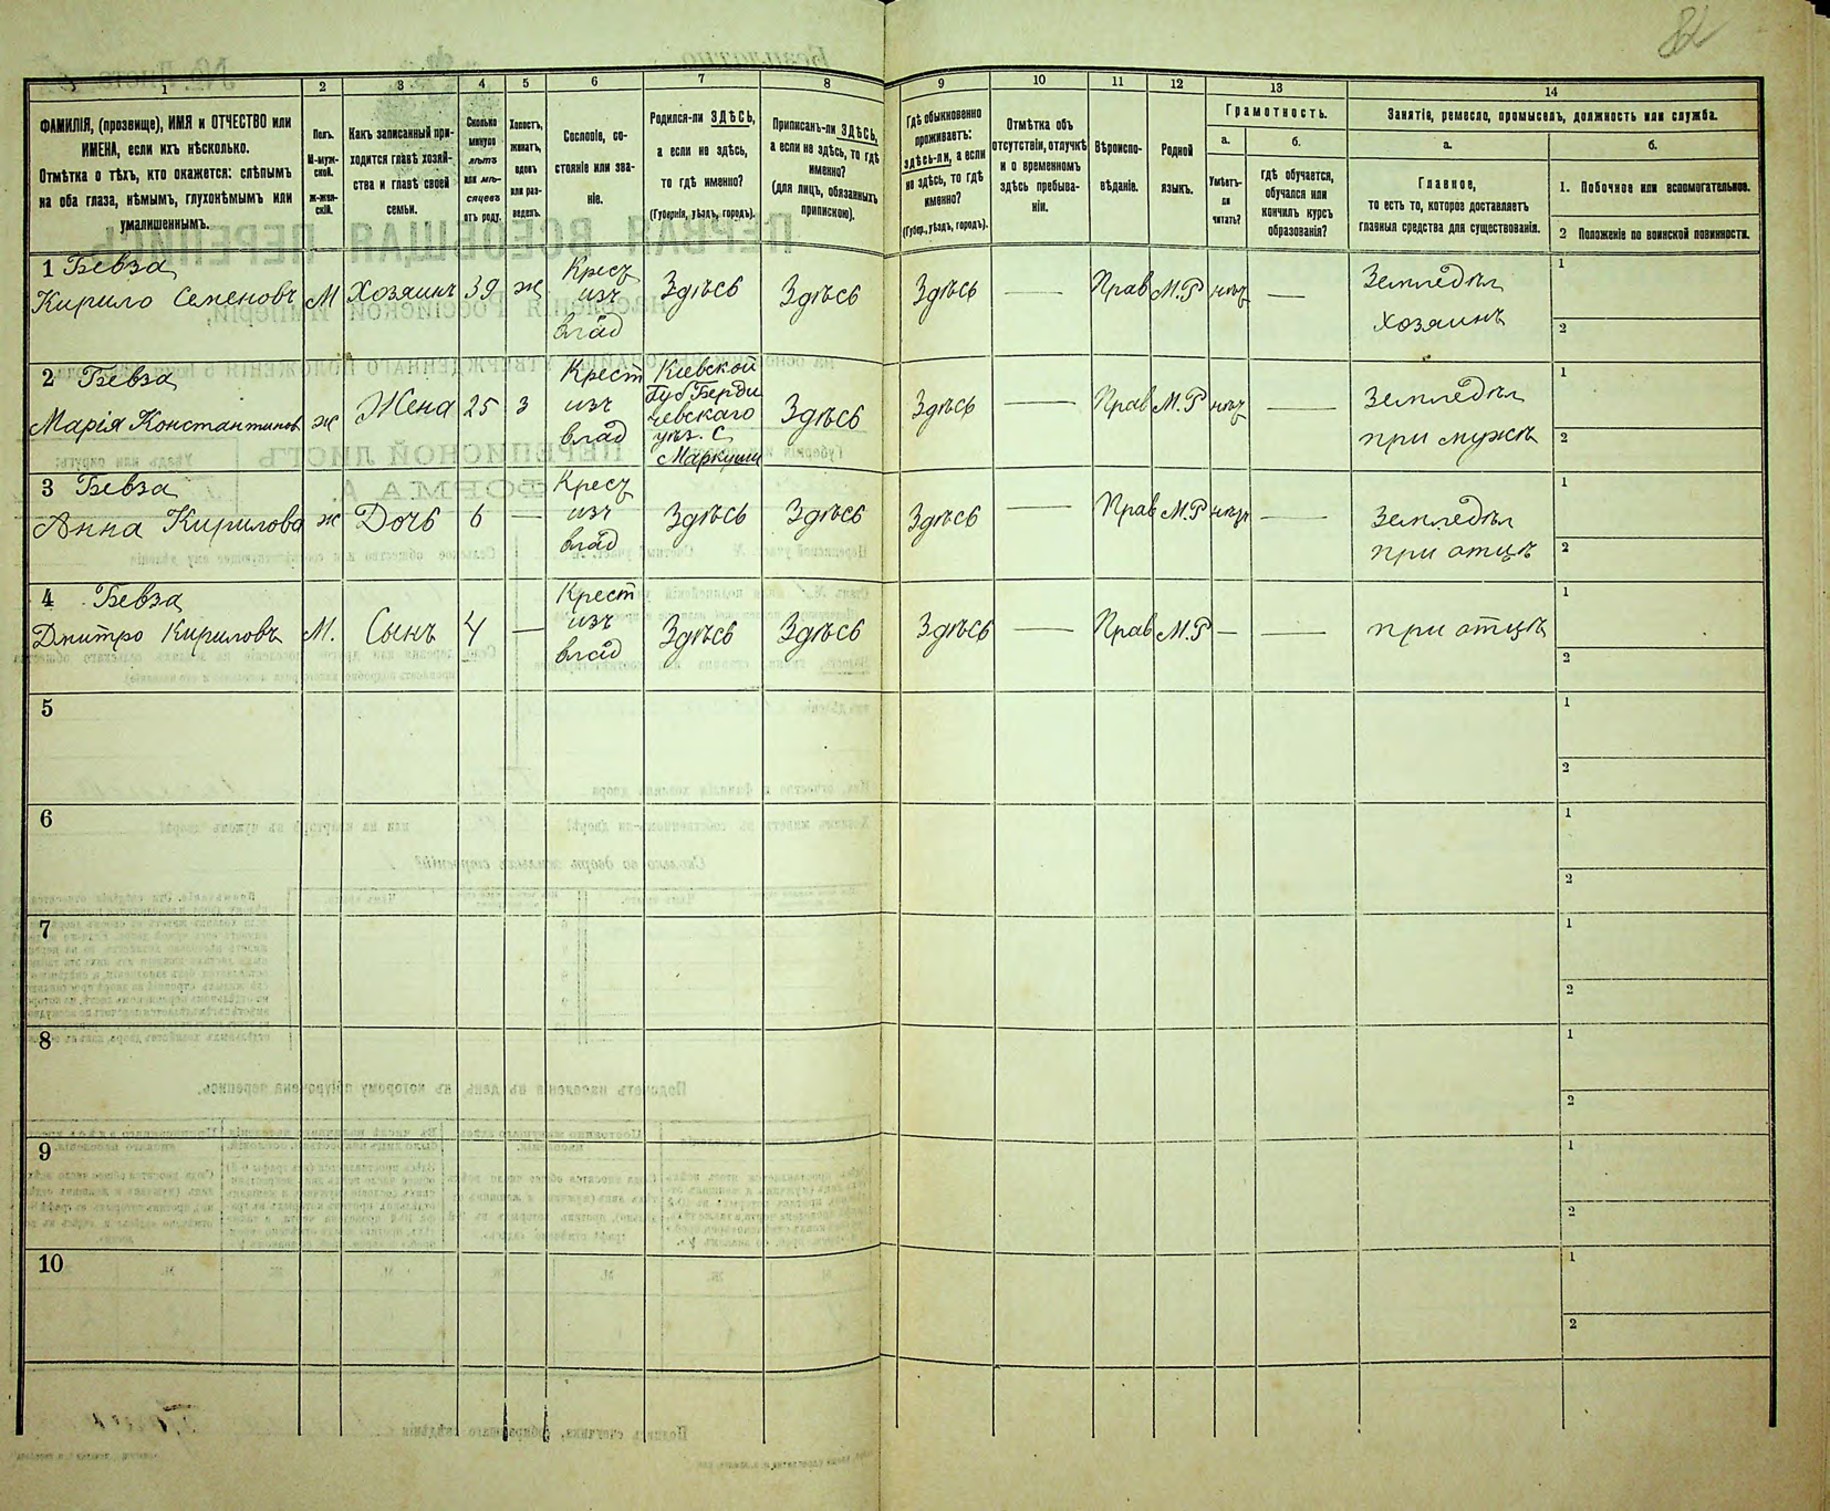 82
1
2
3
4
5
6
7
8
9
10
11
12
13
14
ФАМИЛІЯ, (прозвище), ИМЯ и ОТЧЕСТВО или
ИМЕНА, если ихъ нѣсколько.
Отмѣтка о тѣхъ, кто окажется: слѣпымъ
на оба глаза, нѣмымъ, глухонѣмымъ или
умалишеннымъ.
Полъ.
М-муж-
ской.
Ж-жен-
скій.
Какъ записанный при-
ходится главѣ хозяй-
ства и главѣ своей
семьи.
Сколько
минуло
лѣтъ
или мѣ-
сяцевъ
отъ роду.
Холостъ,
женатъ,
вдовъ
или раз-
веденъ.
Сословіе, со-
стояніе или зва-
ніе.
Родился-ли ЗДѢСЬ,
а если не здѣсь,
то гдѣ именно?
(Губернія, уѣздъ, городъ).
Приписанъ-ли ЗДѢСЬ,
а если не здѣсь, то гдѣ
именно?
(для лицъ, обязанныхъ
припискою).
Гдѣ обыкновенно
проживаетъ:
здѣсь-ли, а если
не здѣсь, то гдѣ
именно?
(Губер., уѣздъ, городъ).
Отмѣтка объ
отсутствіи, отлучкѣ
и о временномъ
здѣсь пребыва-
ніи.
Вѣроиспо-
вѣданіе.
Родной
языкъ.
Грамотность.
а.
Умѣетъ-
ли
читать?
б.
гдѣ обучается,
обучался или
кончилъ курсъ
образованія?
Занятіе, ремесло, промыселъ, должность или служба.
а.
Главное,
то есть то, которое доставляетъ
главныя средства для существованія.
б.
1. Побочное или вспомогательное.
2 Положеніе по воинской повинности.
1 Бевза
Кирило Семеновъ
М
Хозяинъ
39
ж
Крест
изъ
влад
Здѣсь
Здѣсь
Здѣсь
—
Прав
М.Р
нѣт
—
Земледѣл
Хозяинъ
1
2
2 Бевза
Марія Константинов
ж
Жена
25
з
Крест
изъ
влад
Кіевской
Губ Берди
чевскаго
уѣз. с
Маркуши
Здѣсь
Здѣсь
—
Прав
М.Р
нѣт
—
Земледѣл
при мужѣ
1
2
3 Бевза
Анна Кирилова
ж
Дочь
6
—
Крест
изъ
влад
Здѣсь
Здѣсь
Здѣсь
—
Прав
М.Р
нѣт
—
Земледѣл
при отцѣ
1
2
4 Бевза
Дмитро Кириловъ
М.
Сынъ
4
—
Крест
изъ
влад
Здѣсь
Здѣсь
Здѣсь
—
Прав
М.Р
—
—
при отцѣ
1
2
5
1
2
6
1
2
7
1
2
8
1
2
9
1
2
10
1
2